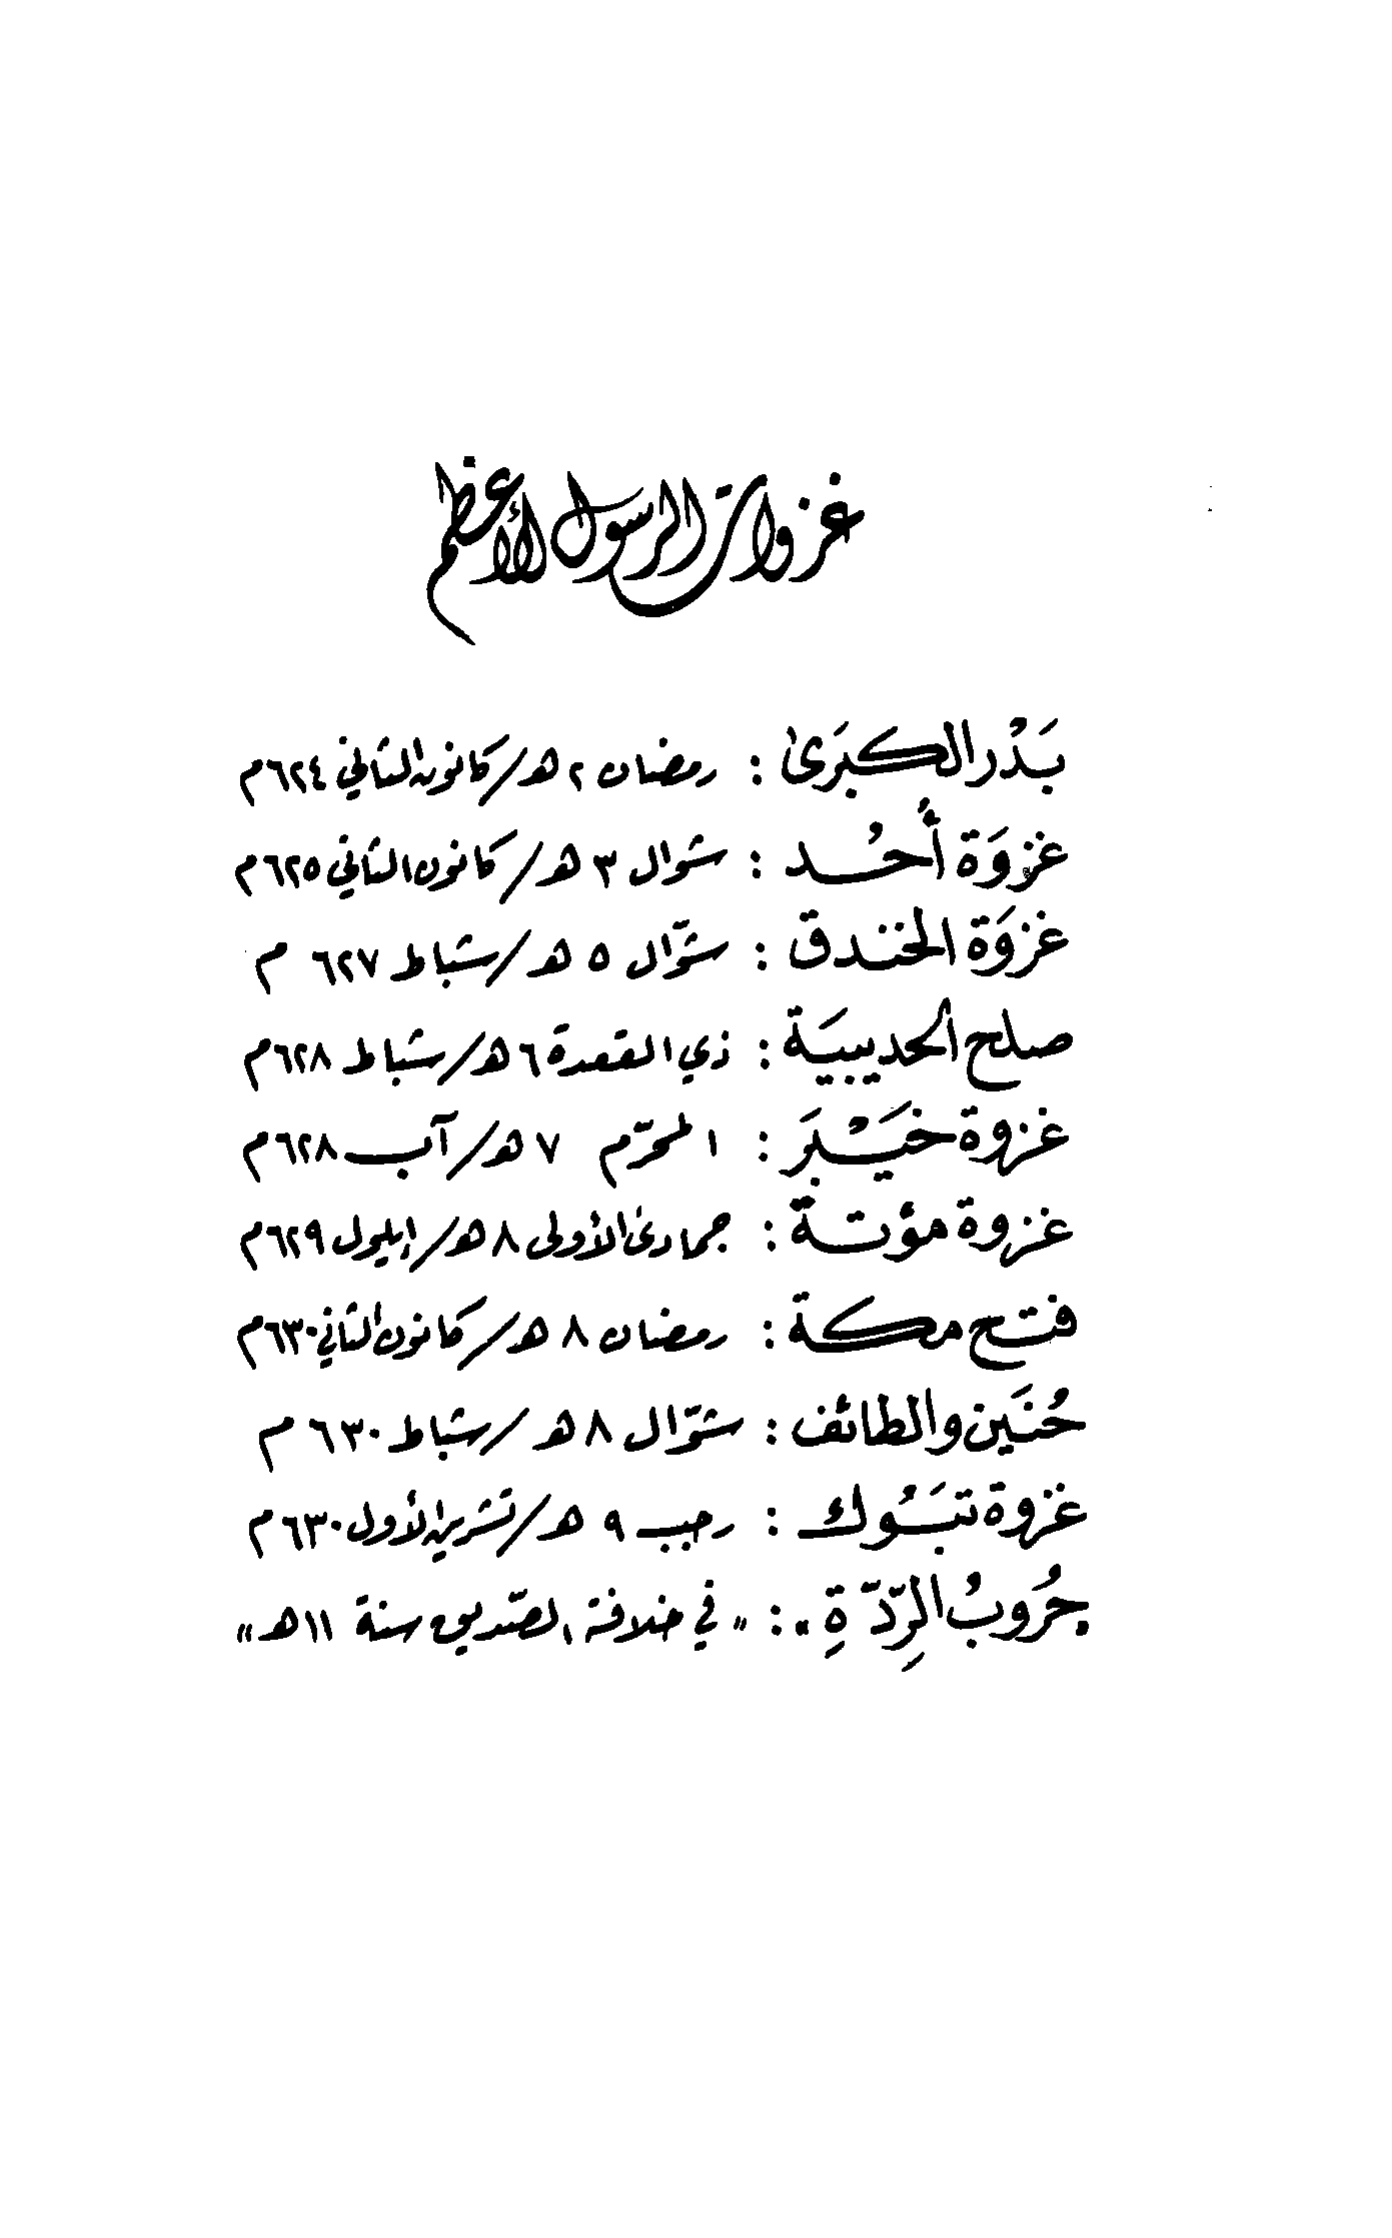 غزوات الرسول الأعظم
بَدْر الكبرَىٰ : رمضان ٢ هـ/كانون الثاني ٦٢٤م
غزوَة أُحُد : شوال ٣ هـ/كانون الثاني ٦٢٥م
غزوَة الخندق : شوّال ٥ هـ/شباط ٦٢٧ م
صلح الحديبيَة : ذي القعدة ٦ هـ/شباط ٦٢٨م
غزوة خَيْبَر : المحرّم ٧ هـ/آب ٦٢٨م
غزوة مؤتة : جمادىٰ الأولى ٨ هـ/إيلول ٦٢٩م
فتح مكة : رمضان ٨ هـ/كانون الثاني ٦٣٠م
حُنَين والطائف : شوّال ٨ هـ/شباط ٦٣٠ م
غزوة تبَُوك : رجب ٩ هـ/تشرين الأول ٦٣٠م
حُروبُ الرِّدّةِ » : « في خلافة الصّديق سنة ١١ هـ »